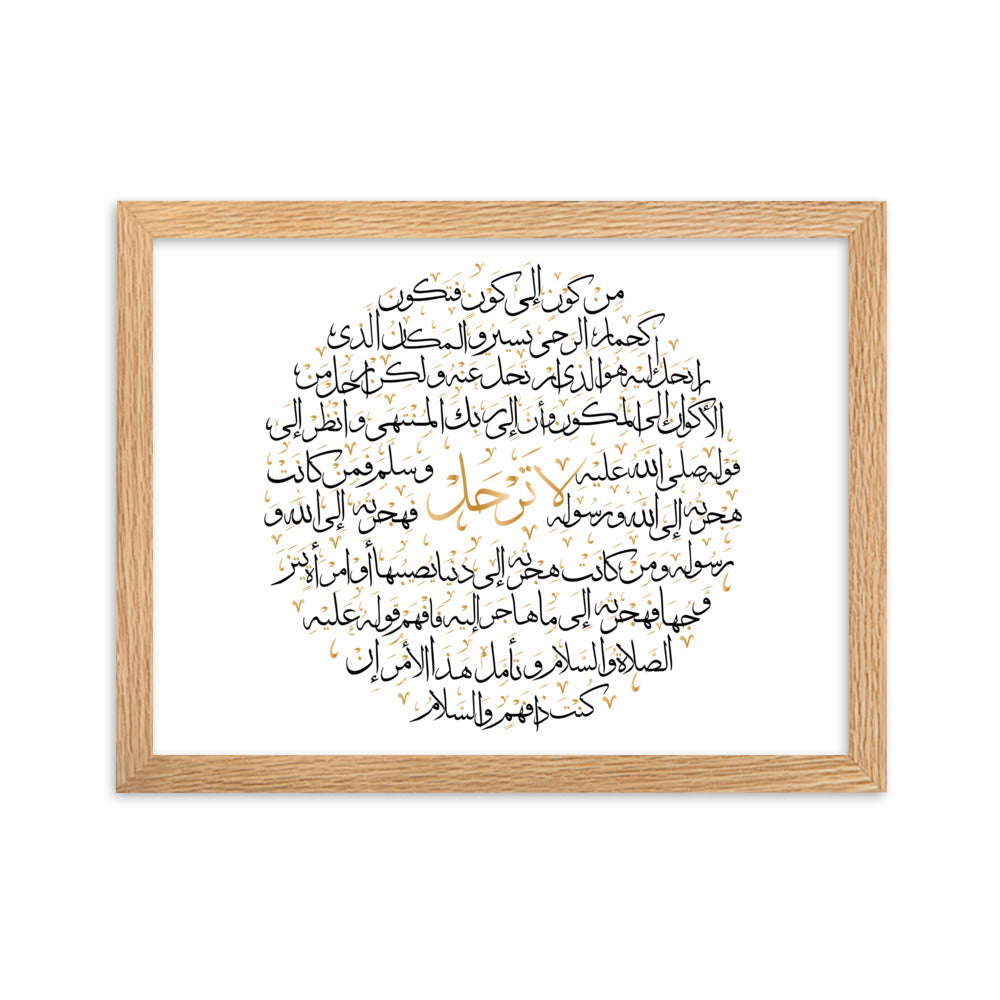 من كون إلى كون فتكون
كحمار الرحى يسير والمكان الذى
ارتحل إليه هو الذى ارتحل عنه ولكن ارحل من
الأكوان إلى المكون وأن إلى ربك المنتهى وانظر إلى
قوله صلى الله عليه لا ترحل وسلم فمن كانت
هجرته إلى الله ورسوله فهجرته إلى الله و
رسوله ومن كانت هجرته إلى دنيا يصيبها أو امرأة يتز
وجها فهجرته إلى ما هاجر إليه فافهم قوله عليه
الصلاة والسلام وتأمل هذا الأمر إن
كنت ذا فهم والسلام